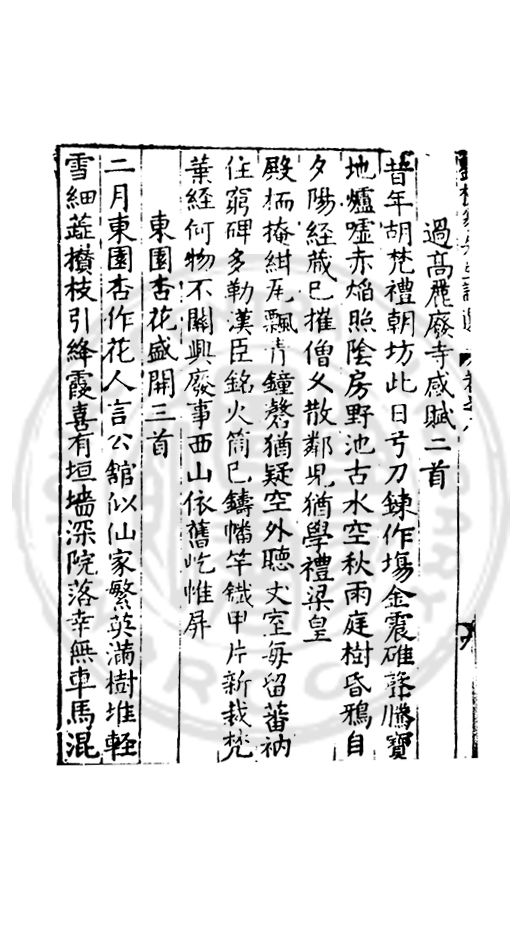 過高麗廢寺感賦二首
昔年胡梵禮朝坊此日弓刀鍊作塲金震碓聲騰寶
地爐噓赤焰照陰房野池古水空秋雨庭樹昏鴉自
夕陽經藏已摧僧又散鄰兒猶學禮梁皇
殿栭掩紺瓦飄青鐘磬猶疑空外聽丈室每留蕃衲
住窮碑多勒漢臣銘火筒已鑄幡竿鐵甲片新裁梵
葉經何物不關興廢事西山依舊屹惟屏
東園杏花盛開三首
二月東園杏作花人言公舘似仙家繁英滿樹堆輕
雪細蕋攢枝引絳霞喜有垣墻深院落幸無車馬混